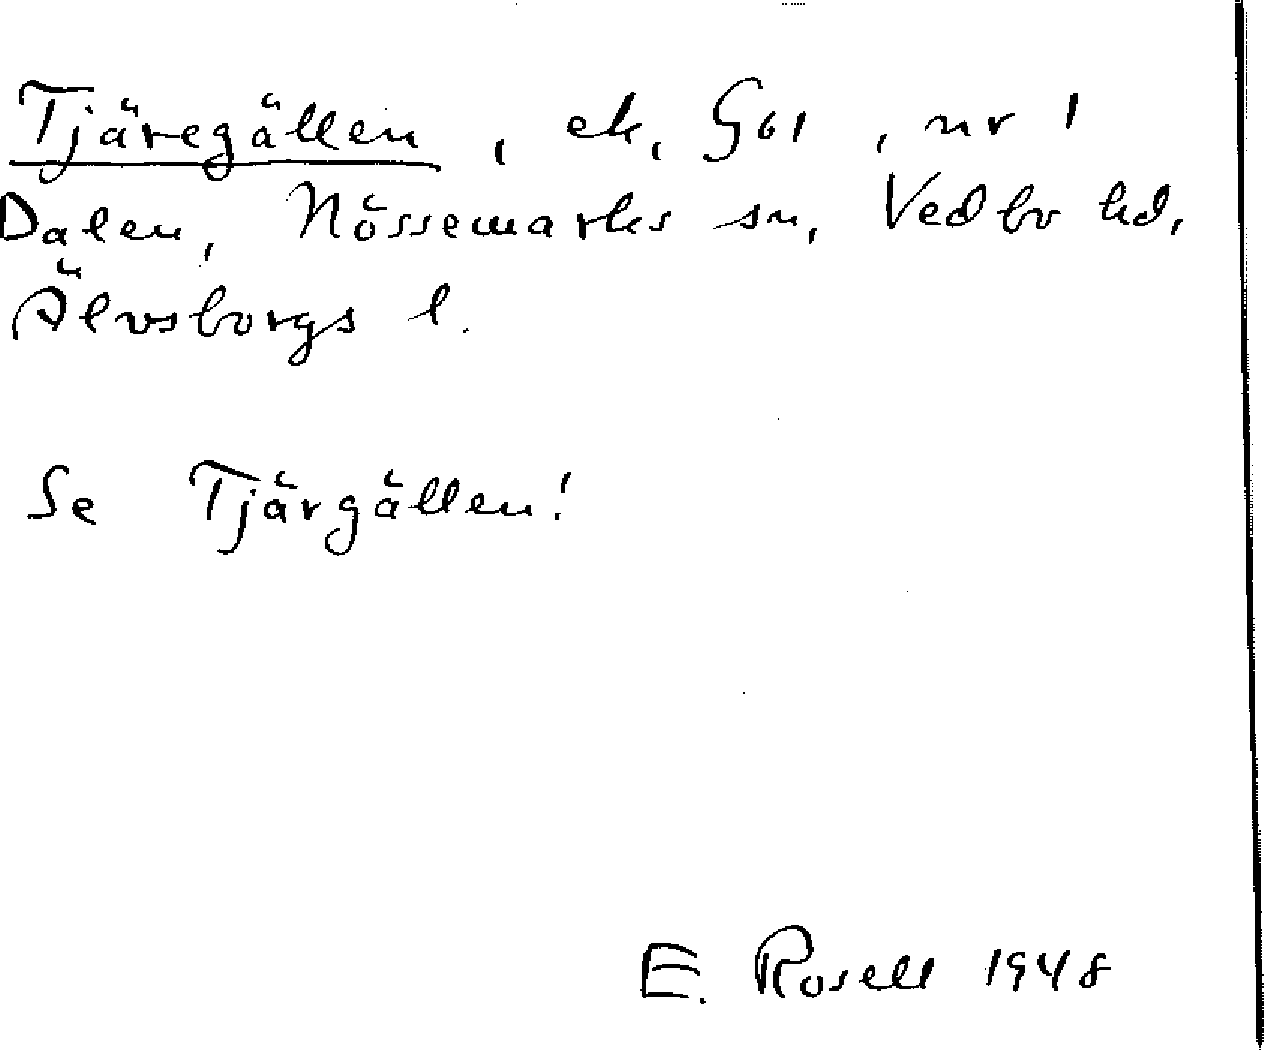 Tjäregällen, ek, G61, nr 1
Dalen, Nössemarks sn, Vedbo hd,
Älvsborgs l.
Se Tjärgällen!
E. Rosell 1948